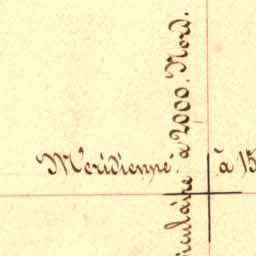 Meridienne. à 15
culaire à 2000. Nord.